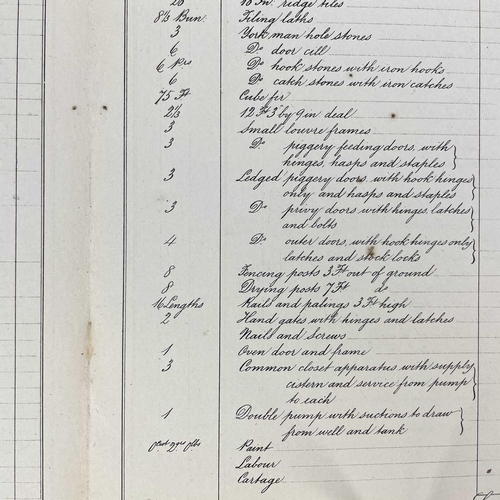 20 18 In. ridge tiles
8½ Bun. Tiling laths
3 York man hole stones
6 Do. door cill
6 Prs Do hook stones with iron hooks
6 Do catch stones with iron catches
75 Ft Cube fir
2⅓ 12 Ft 3 by 9 in deal
3 Small louvre frames
3 Do. piggery feeding doors, with
hinges, hasps and staples
3 Ledged piggery doors with hook hinges
only and hasps and staples
3 Do. privy doors with hinges, latches
and bolts
4 Do. outer doors, with hook hinges only
latches and stock locks
8 Fencing posts 3 Ft out of ground
8 Drying posts 7 Ft do
16 Lengths Rails and palings 3 Ft high
2 Hand gates with hinges and latches
Nails and Screws
1 Oven door and frame
3 Common closet apparatus with supply
cistern and service from pump
to each
1 Double pump with suctions to draw
from well and tank
0cwt 2qrs 0lbs Paint
Labour
Cartage